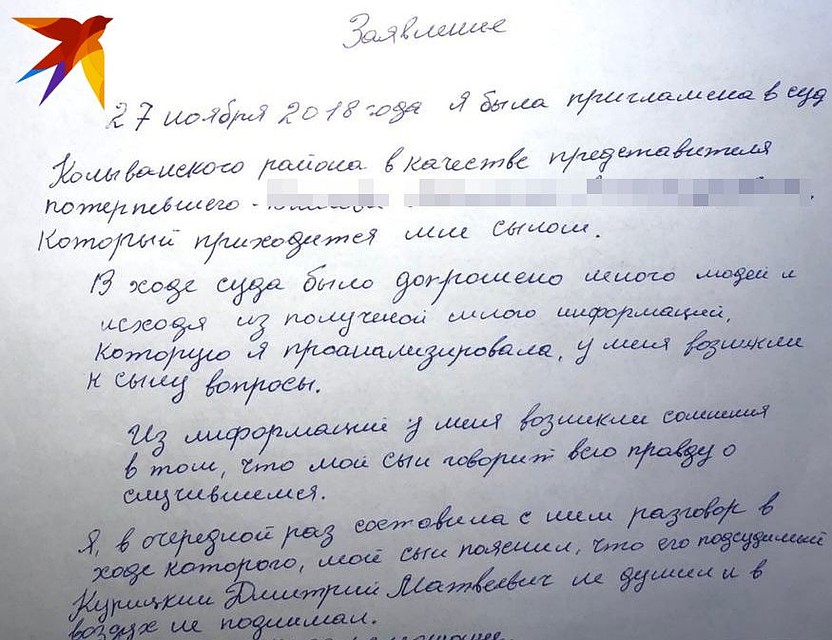 Заявление
27 ноября 2018 года я была приглашена в суд
Колыванского района в качестве представителя
потерпевшего -
который приходится мне сыном.
В ходе суда было допрошено много людей и
исходя из полученой много информаций,
которую я проанализировала, у меня возникли
к сыну вопросы.
Из информаций у меня возникли сомнения
в том, что мой сын говорит всю правду о
случившемся.
Я, в очередной раз составила с ним разговор в
ходе которого, мой сын пояснил, что его подсудимый
Курицкий Дмитрий Матвеевич не душил и в
воздух не поднимал.